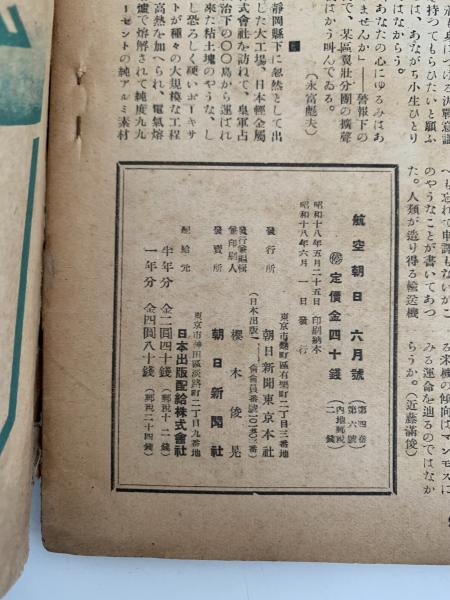 はなからう。
あなたの心にゆるみはあ
ませんか」――警報下の
て、某區翼壯分團の擴聲
はかう叫んでゐる。
（永富彪夫）
靜岡縣下に忽然として出
した大工場、日本輕金屬
式會社を訪ねて、皇軍占
治下の〇〇島から運ばれ
來た粘土塊のやうな、し
し恐ろしく硬いボーキサ
トが種々の大規模な工程
高熱を加へられ、電氣熔
爐で熔解されて純度九九
ーセントの純アルミ素材
も忘れて申譯もないがこ
のやうなことが書いてあつ
た。人類が造り得る輸送機
る米機の傾向はマンモスに
みる運命を辿るのではなか
らうか。（近藤滿俊）
航空朝日 六月號
第四卷
第六號
定價金四十錢
內地郵稅
二錢
昭和十八年五月二十五日印刷納本
昭和十八年六月一日發行
東京市麴町區有樂町二丁目三番地
發行所 朝日新聞東京本社
發行兼編輯
兼印刷人 櫻木俊晃
發賣所 朝日新聞社
東京市神田區淡路町二丁目九番地
配給元 日本出版配給株式會社
半年分 金二圓四十錢（郵稅十二錢）
一年分 金四圓八十錢（郵稅二十四錢）